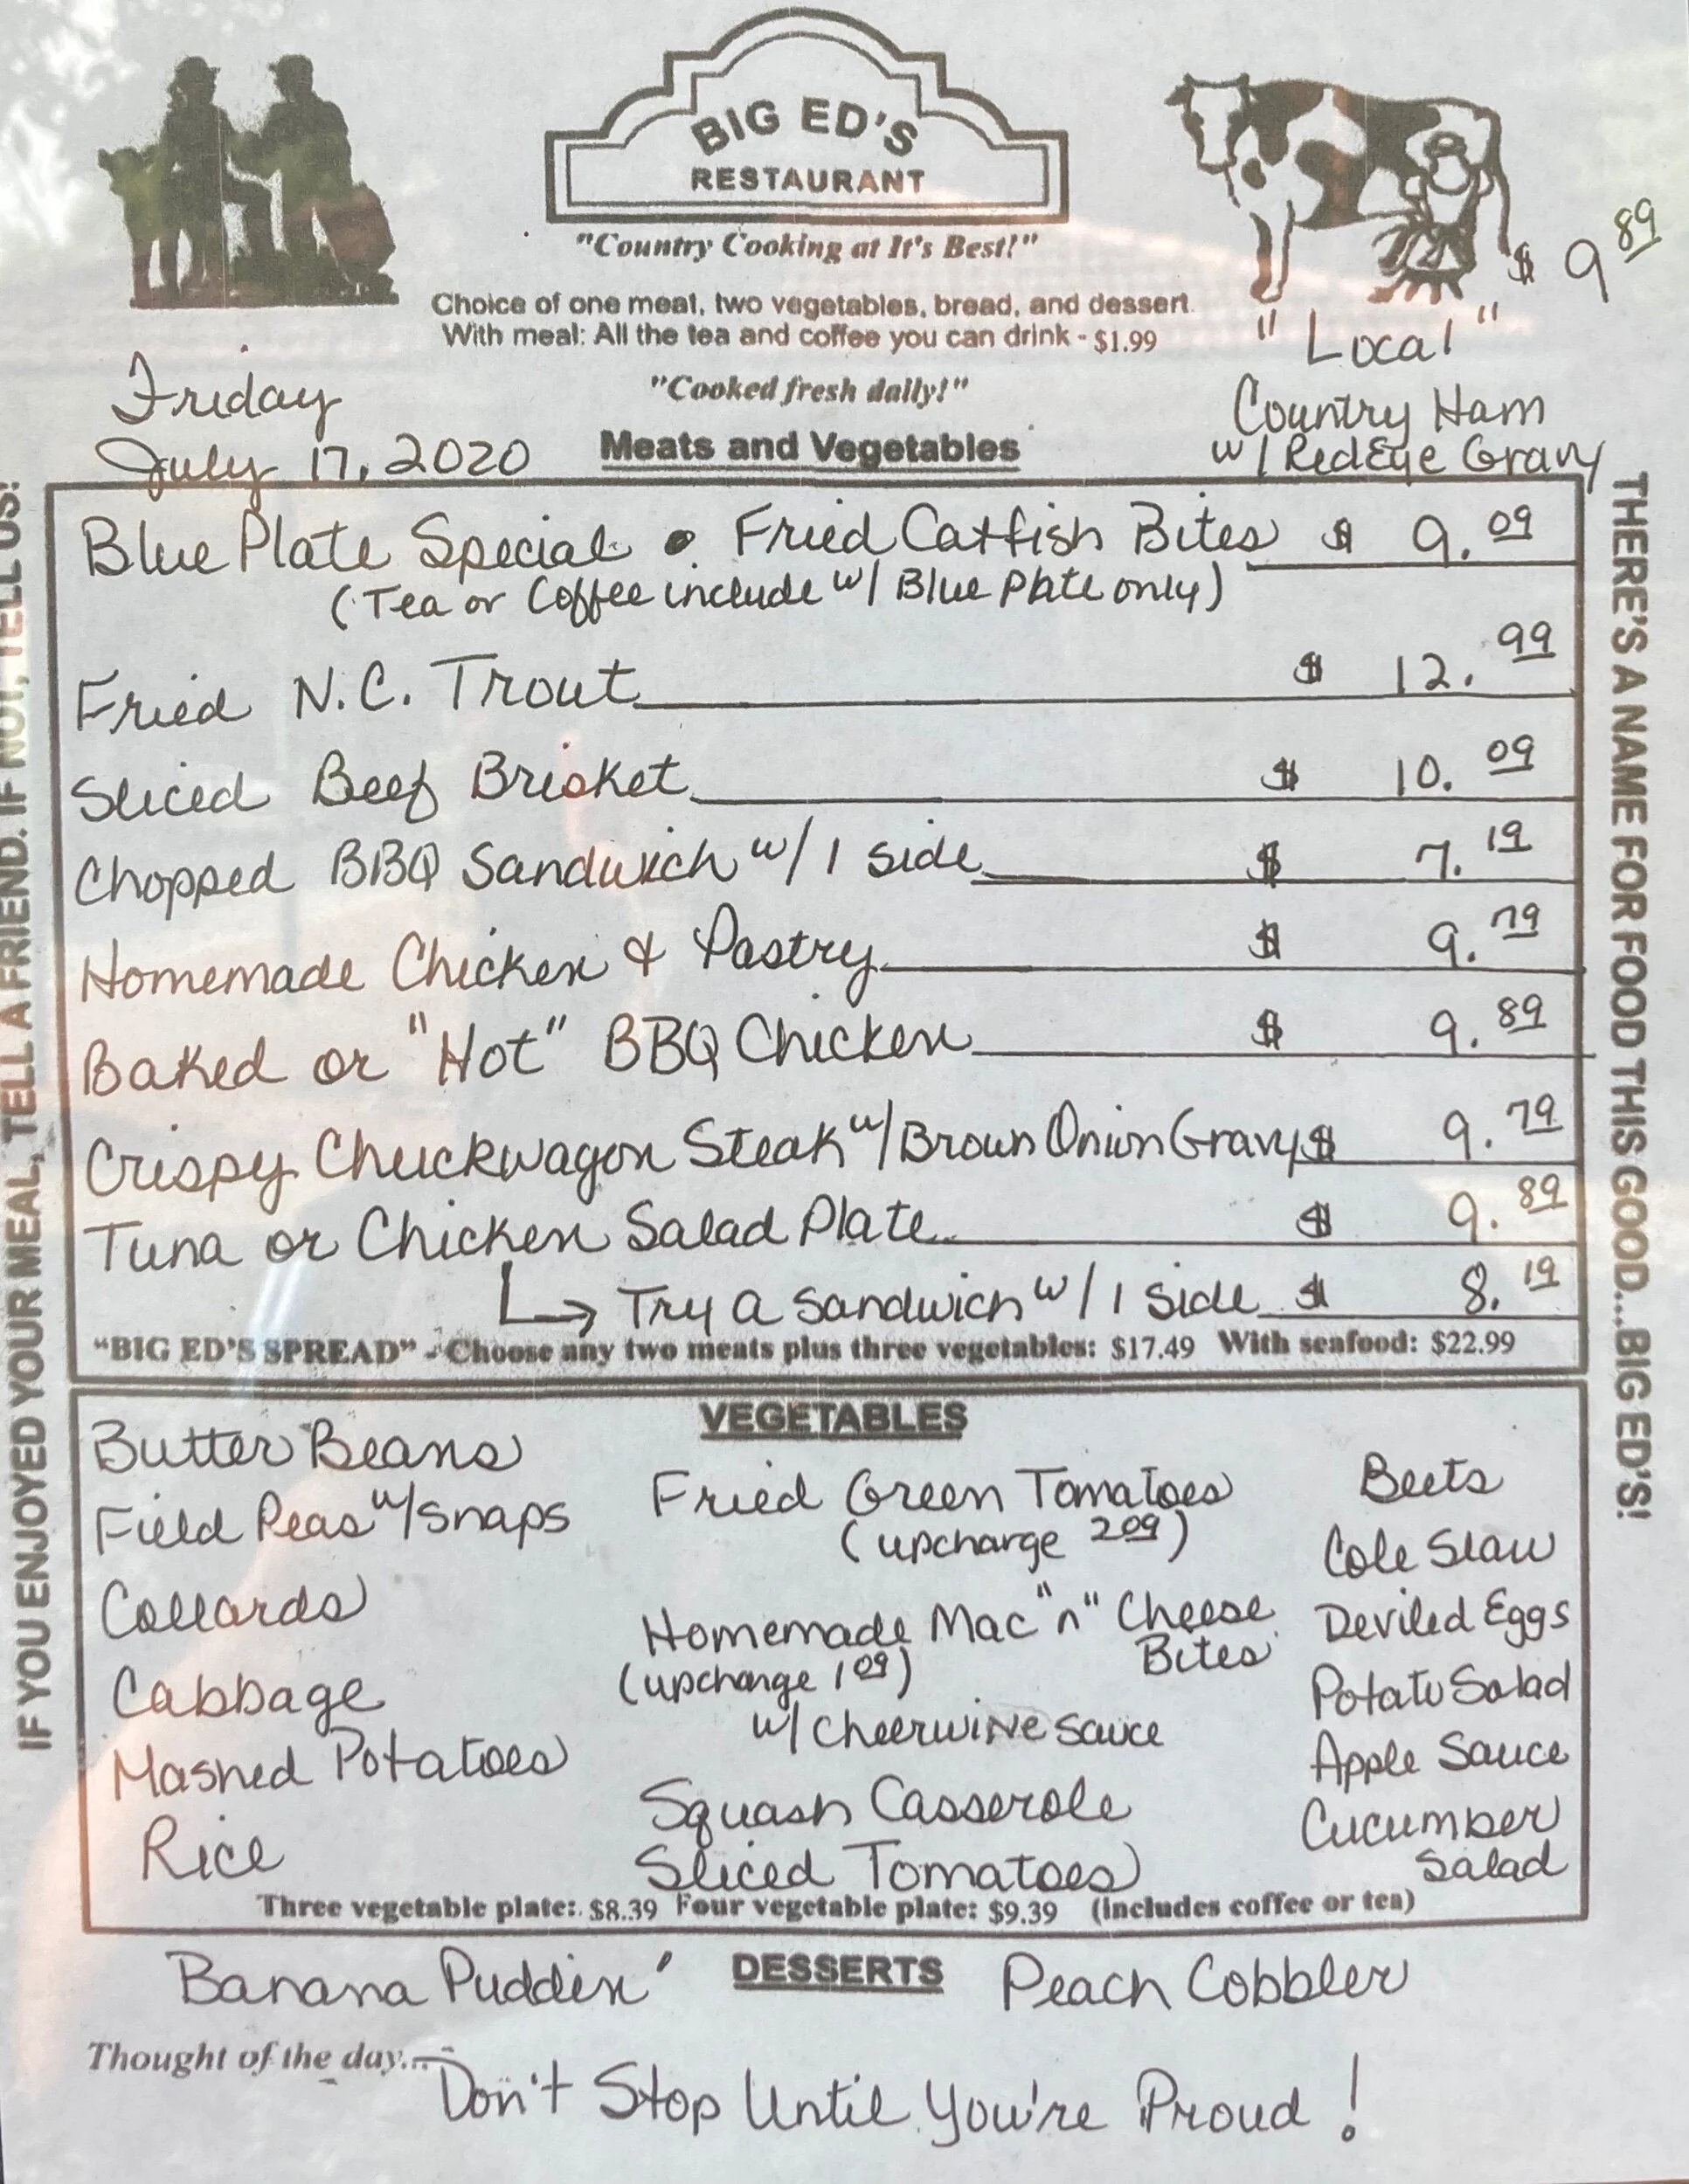 BIG ED'S
RESTAURANT
"Country Cooking at It's Best!"
Choice of one meat, two vegetables, bread, and dessert.
With meal: All the tea and coffee you can drink - $1.99
"Cooked fresh daily!"
$ 9 89
"Local"
Country Ham
w/ RedEye Gravy
Friday
July 17, 2020
Meats and Vegetables
Blue Plate Special • Fried Catfish Bites $ 9.09
(Tea or Coffee include w/ Blue Plate only)
Fried N.C. Trout $ 12.99
Sliced Beef Brisket $ 10.09
Chopped BBQ Sandwich w/ 1 side $ 7.19
Homemade Chicken & Pastry $ 9.79
Baked or "Hot" BBQ Chicken $ 9.89
Crispy Chuckwagon Steak w/ Brown Onion Gravy $ 9.79
Tuna or Chicken Salad Plate $ 9.89
↳ Try a sandwich w/ 1 side $ 8.19
"BIG ED'S SPREAD" - Choose any two meats plus three vegetables: $17.49 With seafood: $22.99
VEGETABLES
Butter Beans
Field Peas w/ snaps
Collards
Cabbage
Mashed Potatoes
Rice
Fried Green Tomatoes
(upcharge 2 09)
Homemade Mac "n" Cheese
Bites
(upcharge 1 09)
w/ Cheerwine sauce
Squash Casserole
Sliced Tomatoes
Beets
Cole Slaw
Deviled Eggs
Potato Salad
Apple Sauce
Cucumber
Salad
Three vegetable plate: $8.39 Four vegetable plate: $9.39 (includes coffee or tea)
Banana Puddin' DESSERTS Peach Cobbler
Thought of the day... Don't Stop Until You're Proud!
IF YOU ENJOYED YOUR MEAL, TELL A FRIEND. IF NOT, TELL US!
THERE'S A NAME FOR FOOD THIS GOOD...BIG ED'S!